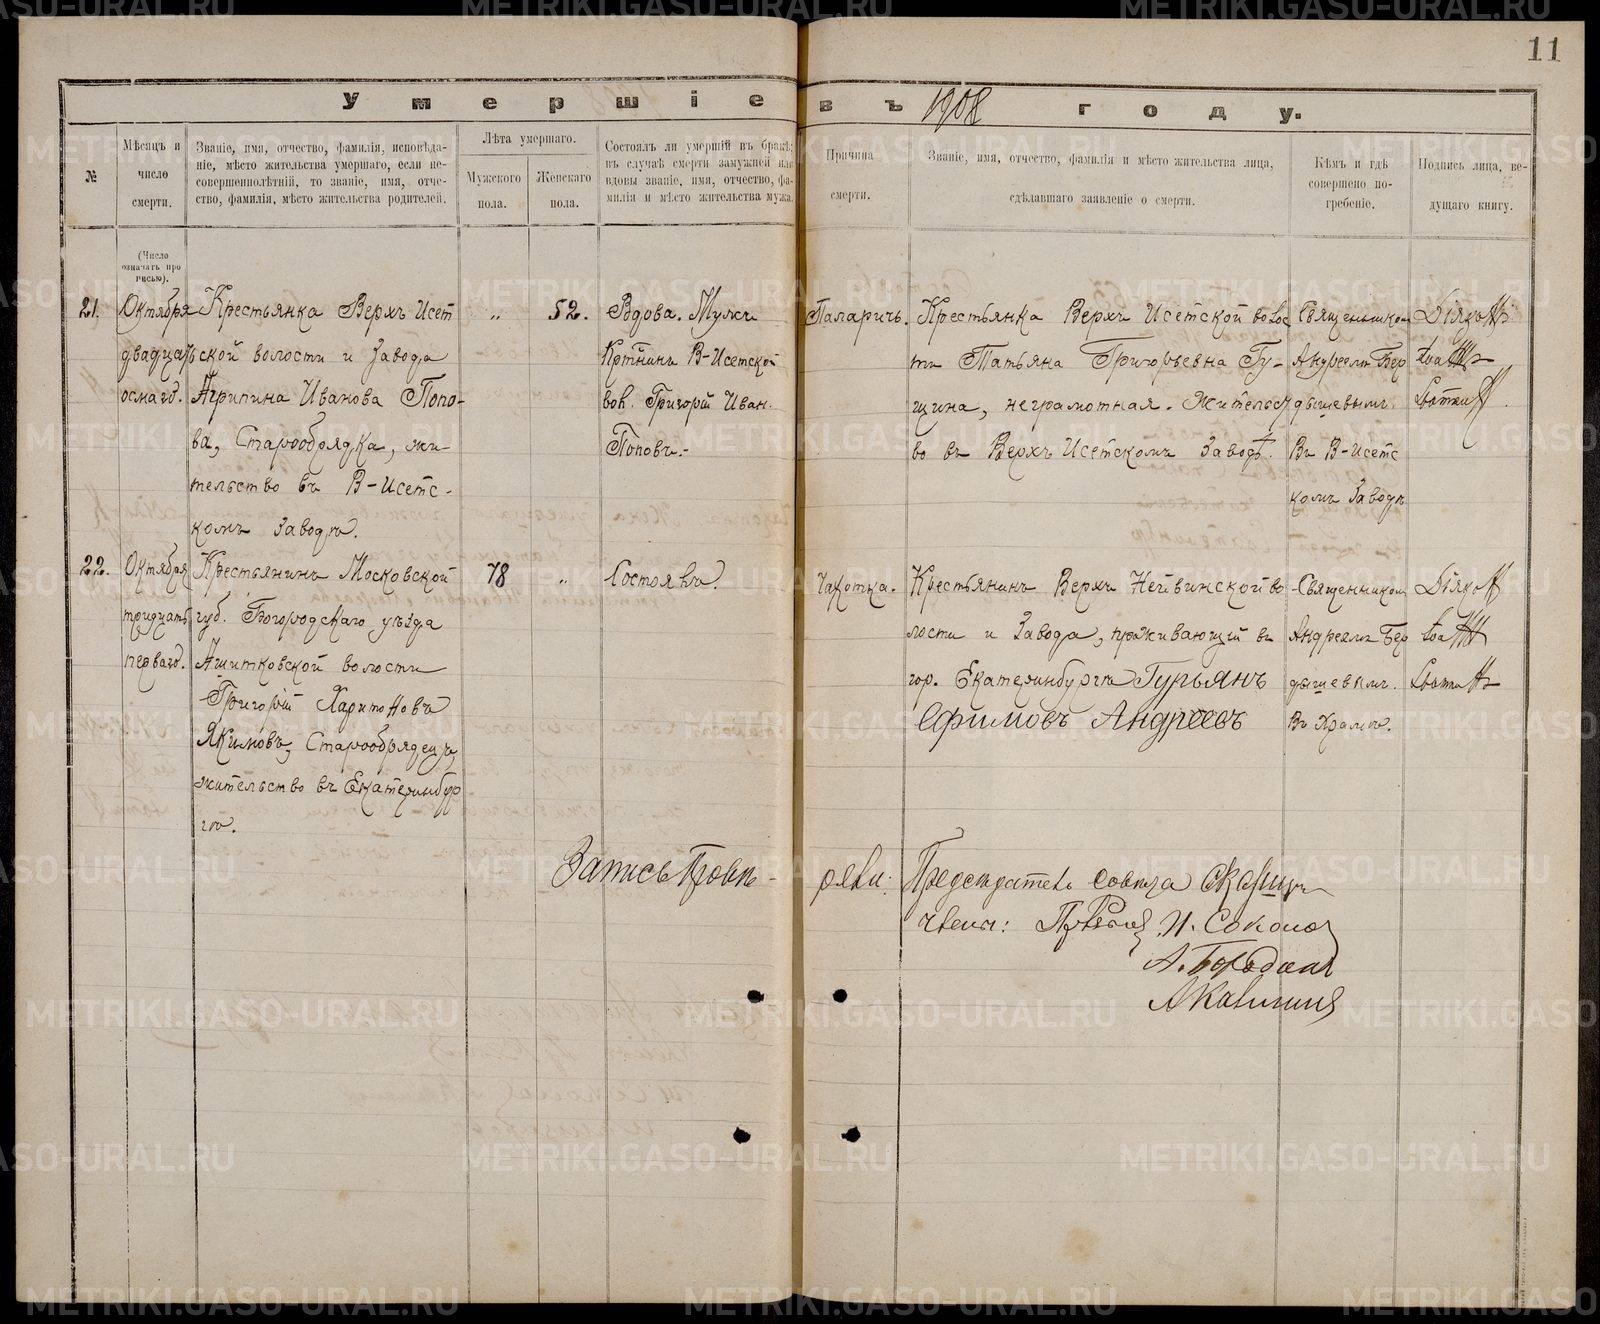 11
Умершіе въ 1908 году.
№
Мѣсяцъ и
число
смерти.
Званіе, имя, отчество, фамилія, исповѣда-
ніе, мѣсто жительства умершаго, если не-
совершеннолѣтній, то званіе, имя, отче-
ство, фамилія, мѣсто жительства родителей.
Лѣта умершаго.
Мужского
пола.
Женскаго
пола.
Состоялъ ли умершій въ бракѣ;
въ случаѣ смерти замужней или
вдовы званіе, имя, отчество, фа-
милія и мѣсто жительства мужа.
Причина
смерти.
Званіе, имя, отчество, фамилія и мѣсто жительства лица,
сдѣлавшаго заявленіе о смерти.
Кѣмъ и гдѣ
совершено по-
гребеніе.
Подпись лица, ве-
дущаго книгу.
(Число
означать про
писью).
21.
Октября
двадцать
осмаго.
Крестьянка Верхъ Исет
ской волости и Завода
Агрипина Иванова Попо-
ва, Старообрядка, жи-
тельство въ В-Исетс-
комъ Заводѣ.
"
52.
Вдова. Мужъ
В-Исетской
вол. Григорій Иван.
Поповъ.-
Параличъ.
Крестьянка Верхъ Исетской волос
ти Татьяна Григорьевна Гу-
щина, неграмотная. Жительст
во въ Верхъ Исетскомъ Заводѣ.
Священникомъ
Андреемъ Бер
дышевымъ.
Въ В-Исетс
комъ Заводѣ
22.
Октября
тридцать
перваго.
Крестьянинъ Московской
губ. Богородскаго уѣзда
Ашитковской волости
Григорій Харитоновъ
Якимовъ, Старообрядецъ,
жительство въ Екатеринбур
гѣ.
78
"
Состоялъ.
Чахотка.
Крестьянинъ Верхъ Нейвинской во
лости и Завода, проживающій въ
гор. Екатеринбургѣ Гурьянъ
Ефимовъ Андреевъ
Священникомъ
Андреемъ Бер
дышевымъ.
Въ Храмѣ.
Запись провѣ-
ряли: Предсѣдатель совѣта
Члены: И. Соколов
А. Бородин
А Калинин
METRIKI.GASO-URAL.RU